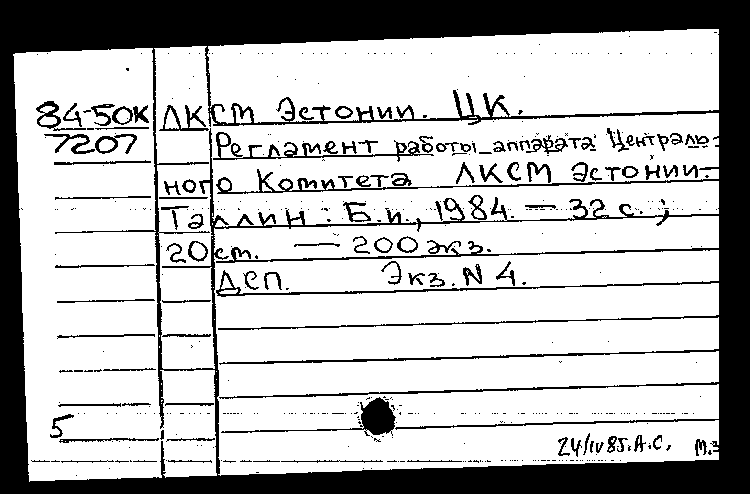 84-50К ЛКСМ Эстонии. ЦК.
7207 Регламент работы аппарата Централь-
ного Комитета ЛКСМ Эстонии.-
Таллин : Б.и., 1984. — 32 с. ;
20 ст. — 200 экз.
ДСП. Экз. N 4.
5
24/IV 85. А.С. М.З